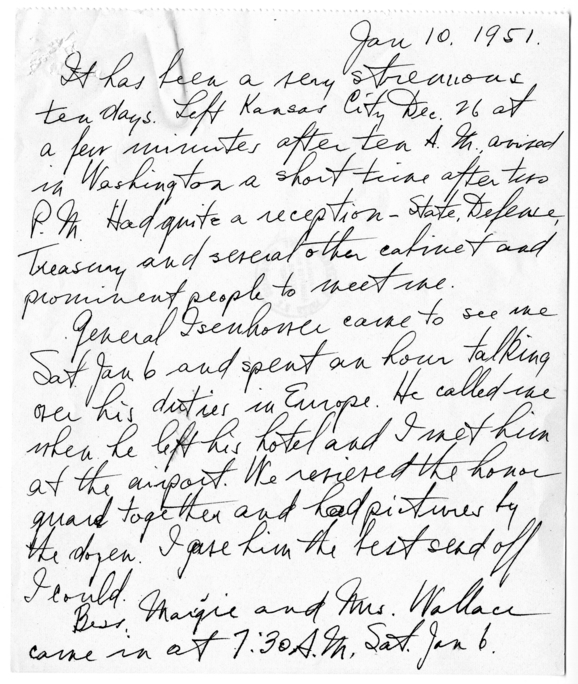 Jan 10. 1951.
It has been a very strenuous
ten days. Left Kansas City Dec. 26 at
a few minutes after ten A.M., arrived
in Washington a short time after two
P.M. Had quite a reception - State, Defense,
Treasury and several other cabinet and
prominent people to meet me.
General Isenhower came to see me
Sat. Jan 6 and spent an hour talking
over his duties in Europe. He called me
when he left his hotel and I met him
at the airport. We reviewed the honor
guard together and had pictures by
the dozen. I gave him the best send off
I could.
Bess, Margie and Mrs. Wallace
came in at 7:30 A.M. Sat. Jan 6.